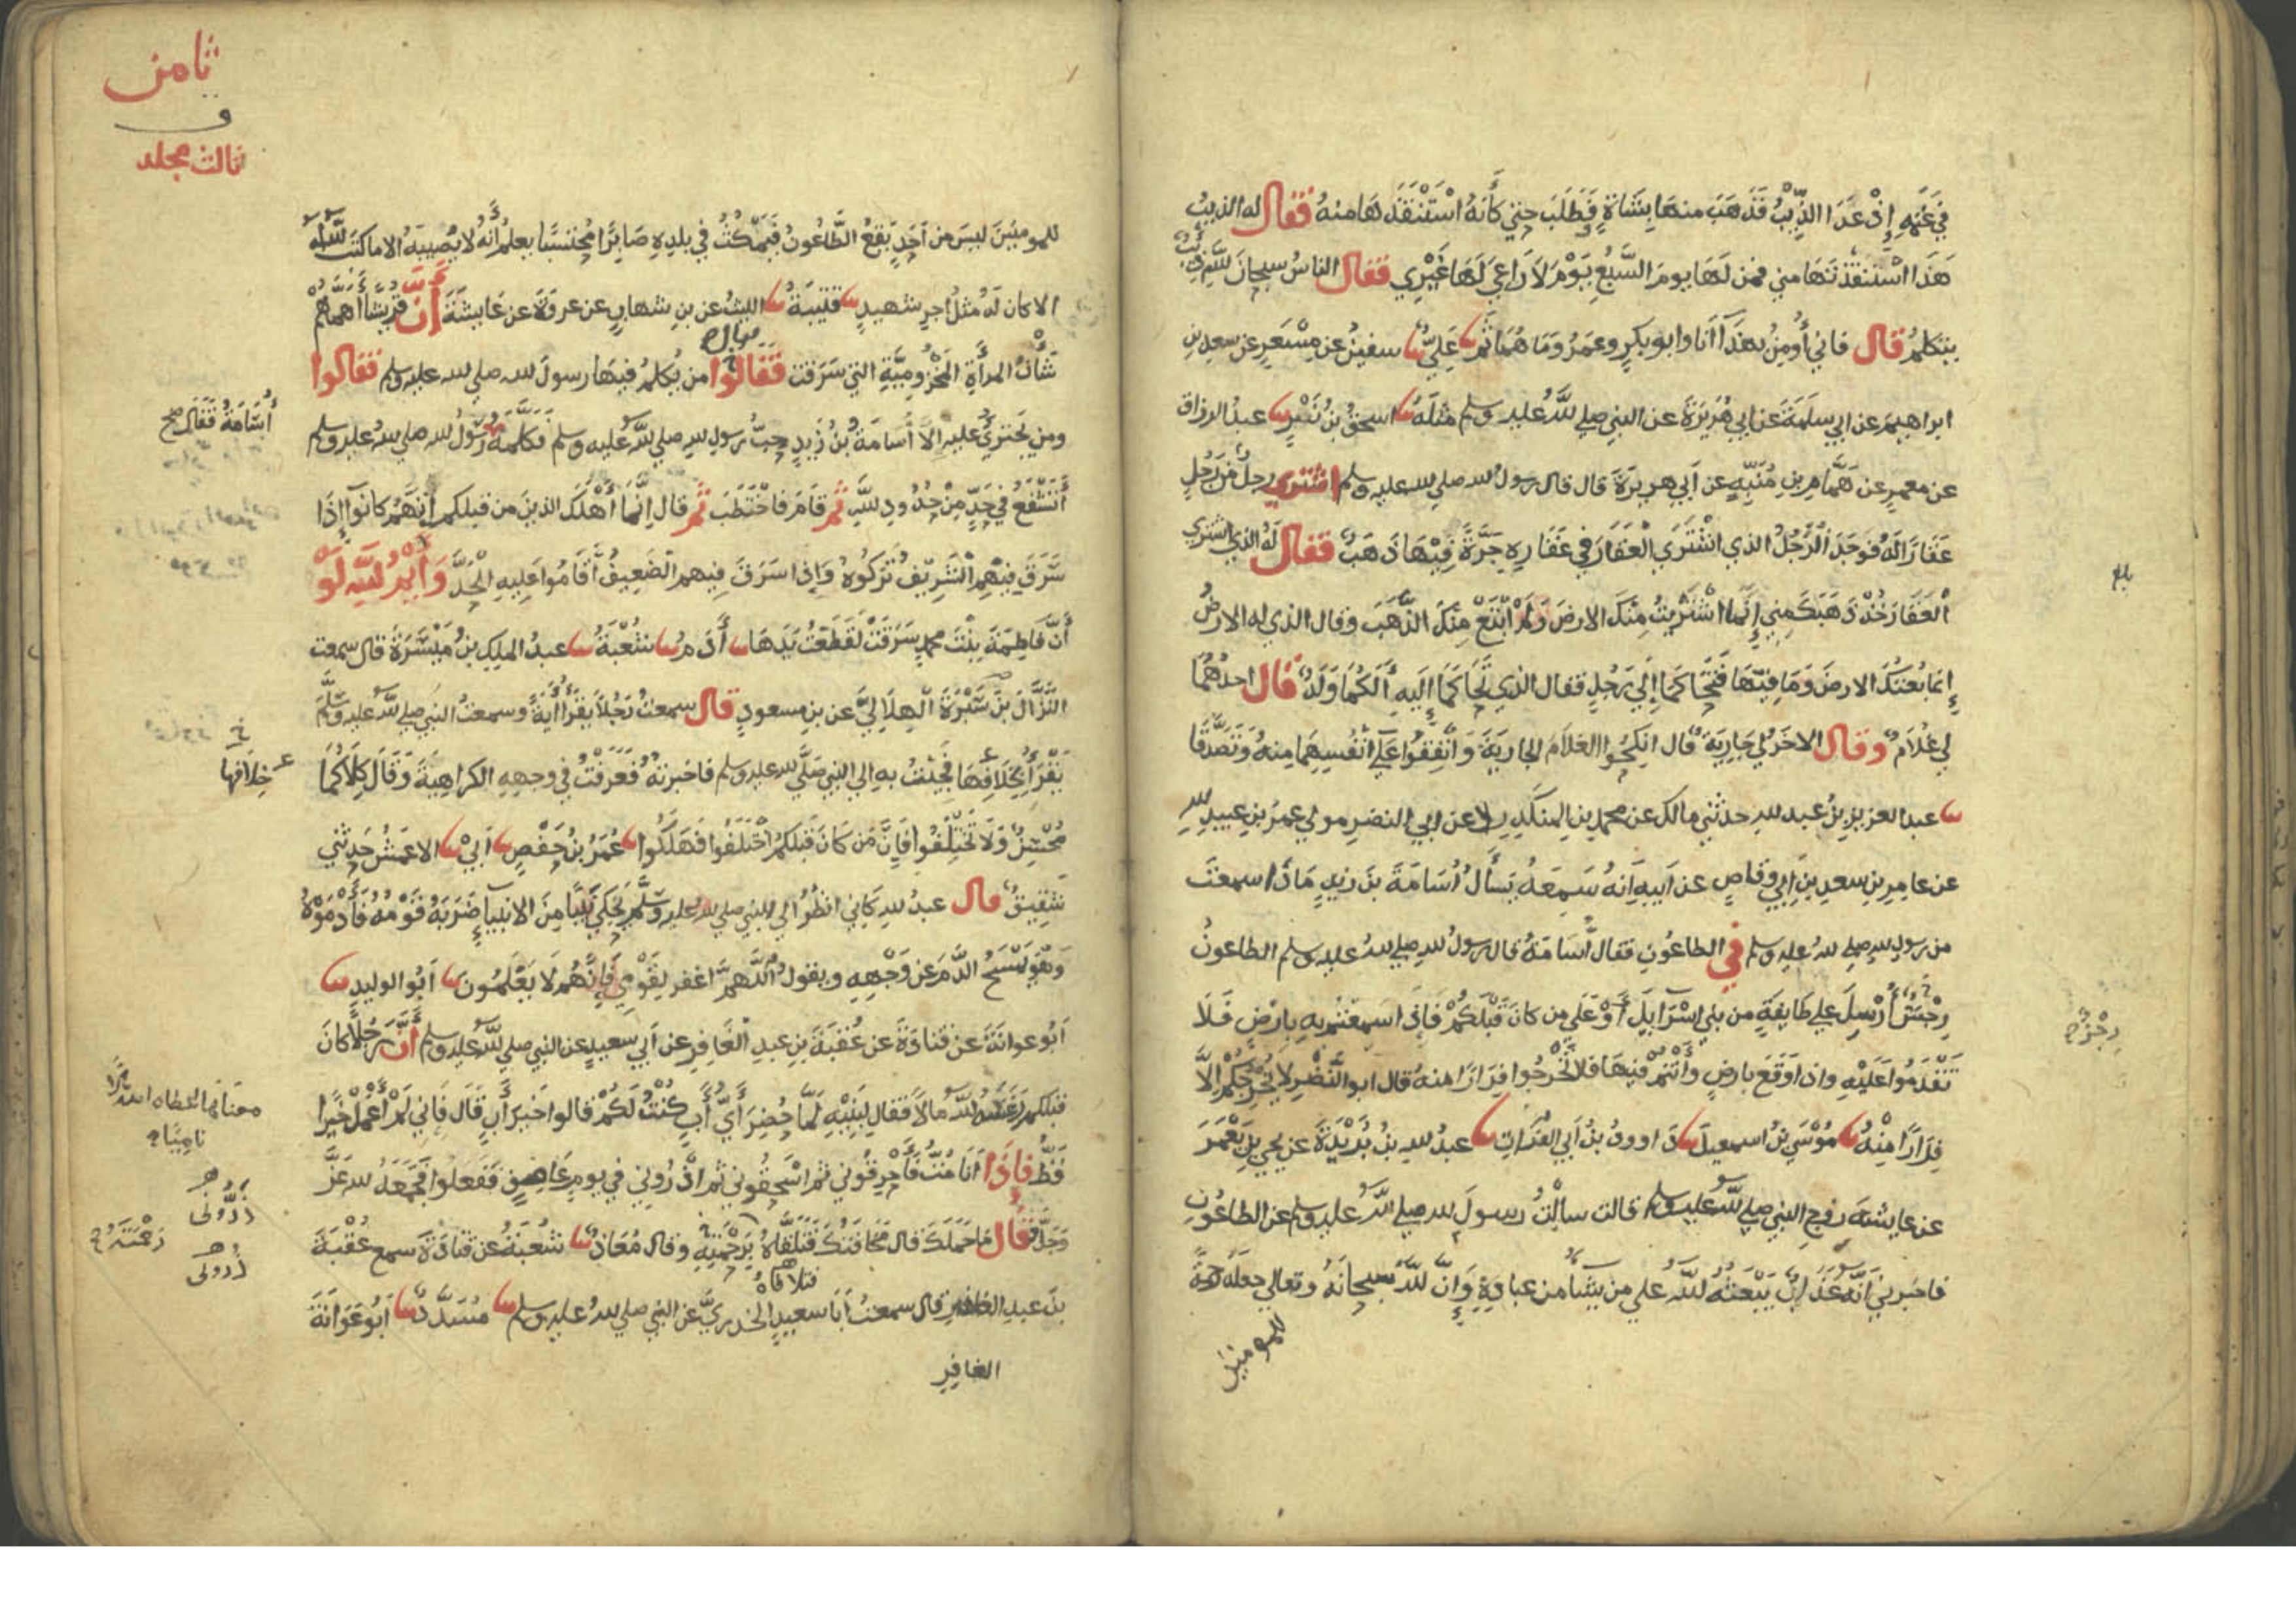 في غنمه إذ عدا الذيب فذهب منها بشاة فطلب حتى كأنه استنقذها منه فقال له الذيب
هذا استنقذتها مني فمن لها يوم السبع يوم لا راعي لها غيري فقال الناس سبحان الله ذيب
يتكلم قال فاني أومن بهذا أنا وابو بكر وعمر وما هما ثم ثنا علي ثنا سفين عن مسعر عن سعد بن
ابراهيم عن ابي سلمة عن ابي هريرة عن النبي صلى الله عليه وسلم مثله ثنا اسحق بن نصر ثنا عبد الرزاق
عن معمر عن همام بن منبه عن أبي هريرة قال قال رسول الله صلى الله عليه وسلم اشترى رجل من رجل
عقارا له فوجد الرجل الذي اشترى العقار في عقاره جرة فيها ذهب فقال له الذي اشترى
العقار خذ ذهبك مني إنما اشتريت منك الارض ولم أبتع منك الذهب وقال الذي له الارض
إنما بعتك الارض وما فيها فتحاكما إلى رجل فقال الذي تحاكما إليه ألكما ولد قال احدهما
لي غلام وقال الاخر لي جارية قال انكحوا الغلام الجارية وأنفقوا على أنفسهما منه وتصدقا
ثنا عبد العزيز بن عبد الله حدثني مالك عن محمد بن المنكدر وعن ابي النضر مولى عمر بن عبيد الله
عن عامر بن سعد بن ابي وقاص عن ابيه انه سمعه يسأل أسامة بن زيد ماذا سمعت
من رسول الله صلى الله عليه وسلم في الطاعون فقال أسامة قال رسول الله صلى الله عليه وسلم الطاعون
رجس أرسل على طايفة من بني اسرايل أو على من كان قبلكم فإذا سمعتم به بارض فلا
تقدموا عليه واذا وقع بارض وأنتم فيها فلا تخرجوا فرارا منه قال ابو النضر لا يخرجكم إلا
فرارا منه ثنا موسى بن اسمعيل ثنا داوود بن أبي الفرات ثنا عبد الله بن بريدة عن يحيى بن يعمر
عن عايشة زوج النبي صلى الله عليه وسلم قالت سألت رسول الله صلى الله عليه وسلم عن الطاعون
فاخبرني أنه عذاب يبعثه الله على من يشا من عباده وإن الله سبحانه وتعالى جعله رحمة
للمومنين
رجز
ثامن
و
ثالث مجلد
للمومنين ليس من أحد يقع الطاعون فيمكث في بلده صابرا محتسبا يعلم أنه لا يصيبه الا ما كتب الله له
الا كان له مثل اجر شهيد ثنا قتيبة ثنا الليث عن بن شهاب عن عروة عن عايشة أن قريشا أهمهم
شأن المرأة المخزومية التي سرقت فقالوا من يكلم فيها رسول الله صلى الله عليه وسلم فقالوا
ومن يجترئ عليه الا أسامة بن زيد حب رسول الله صلى الله عليه وسلم فكلمه رسول الله صلى الله عليه وسلم
أسامة فقال صح
أتشفع في حد من حدود الله ثم قام فاختطب ثم قال إنما أهلك الذين من قبلكم أنهم كانوا إذا
سرق فيهم الشريف تركوه وإذا سرق فيهم الضعيف أقاموا عليه الحد وأيم الله لو
أن فاطمة بنت محمد سرقت لقطعت يدها ثنا أدم ثنا شعبة ثنا عبد الملك بن ميسرة قال سمعت
النزال بن سبرة الهلالي عن بن مسعود قال سمعت رجلا يقرأ أية وسمعت النبي صلى الله عليه وسلم
يقرأ بخلافها فجئت به الى النبي صلى الله عليه وسلم فاخبرته فعرفت في وجهه الكراهية وقال كلاكما
خلافها
محسن ولا تختلفوا فإن من كان قبلكم اختلفوا فهلكوا ثنا عمر بن حفص ثنا أبي ثنا الاعمش حدثني
شقيق قال عبد الله كاني انظر الى النبي صلى الله عليه وسلم يحكي نبيا من الانبيا ضربه قومه فأدموه
وهو يمسح الدم عن وجهه ويقول اللهم اغفر لقومي فإنهم لا يعلمون ثنا أبو الوليد ثنا
أبو عوانة عن قتادة عن عقبة بن عبد الغافر عن أبي سعيد عن النبي صلى الله عليه وسلم أن رجلا كان
قبلكم رغسه الله مالا فقال لبنيه لما حضر أي أب كنت لكم قالوا خير أب قال فاني لم أعمل خيرا
قط فإذا أنا مت فأحرقوني ثم اسحقوني ثم اذروني في يوم عاصف ففعلوا فجمعه الله عز
وجل فقال ما حملك قال مخافتك فتلقاه برحمته وقال معاذ ثنا شعبة عن قتادة سمع عقبة
فتلافاه
بن عبد الغافر قال سمعت أبا سعيد الخدري عن النبي صلى الله عليه وسلم ثنا مسدد ثنا أبو عوانة
معناه اعطاه الله
ناميا
اذروني
رحمته
اذروني
الغافر